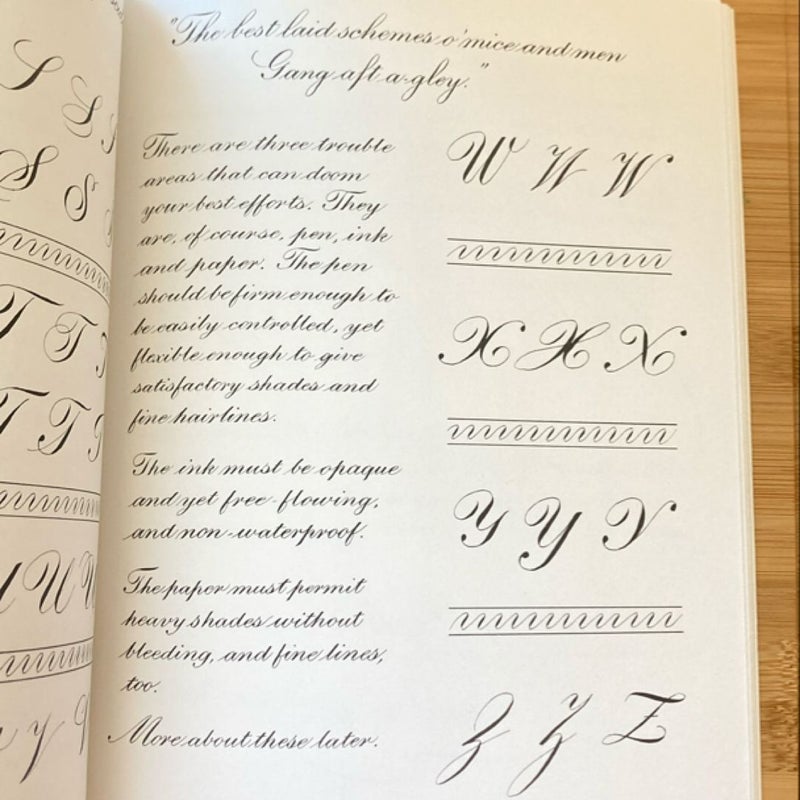 "The best laid schemes o' mice and men
Gang aft a-gley."
There are three trouble
areas that can doom
your best efforts. They
are, of course, pen, ink
and paper. The pen
should be firm enough to
be easily controlled, yet
flexible enough to give
satisfactory shades and
fine hairlines.
The ink must be opaque
and yet free-flowing,
and non-waterproof.
The paper must permit
heavy shades without
bleeding, and fine lines,
too.
More about these later.
W W W
X X X
Y Y Y
Z Z Z
S S
S S
T T
T T
U U
y